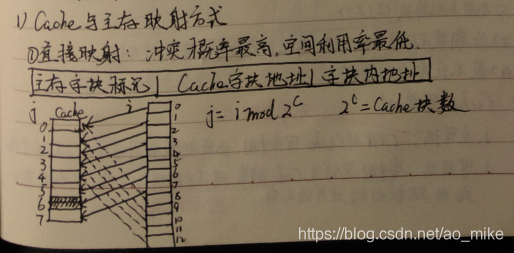 1) Cache与主存映射方式
①直接映射: 冲突概率最高,空间利用率最低.
主存字块标记 | Cache字块地址 | 字块内地址
j Cache i j=i mod 2^c 2^c=Cache块数
0
1
2
3
4
5
6
7
0
1
2
3
4
5
6
7
8
9
10
11
12
https://blog.csdn.net/ao_mike